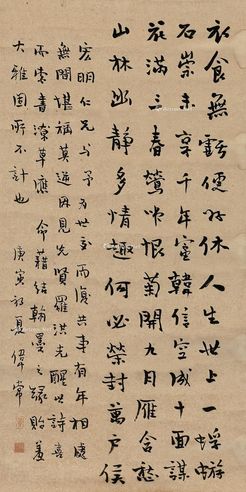 衣食無虧便好休人生世上一蜉蝣
石崇未享千年富韓信空成十面謀
花滿三春鶯啼恨菊開九月雁含愁
山林幽靜多情趣何必榮封萬戶侯
宏明仁兄与予為世交而復共事有年相處
無間堪稱莫逆因見先賢羅洪先醒世詩喜
而索書潦草應 命藉結翰墨之緣貽羞
大雅固所不計也 庚寅初夏偉常